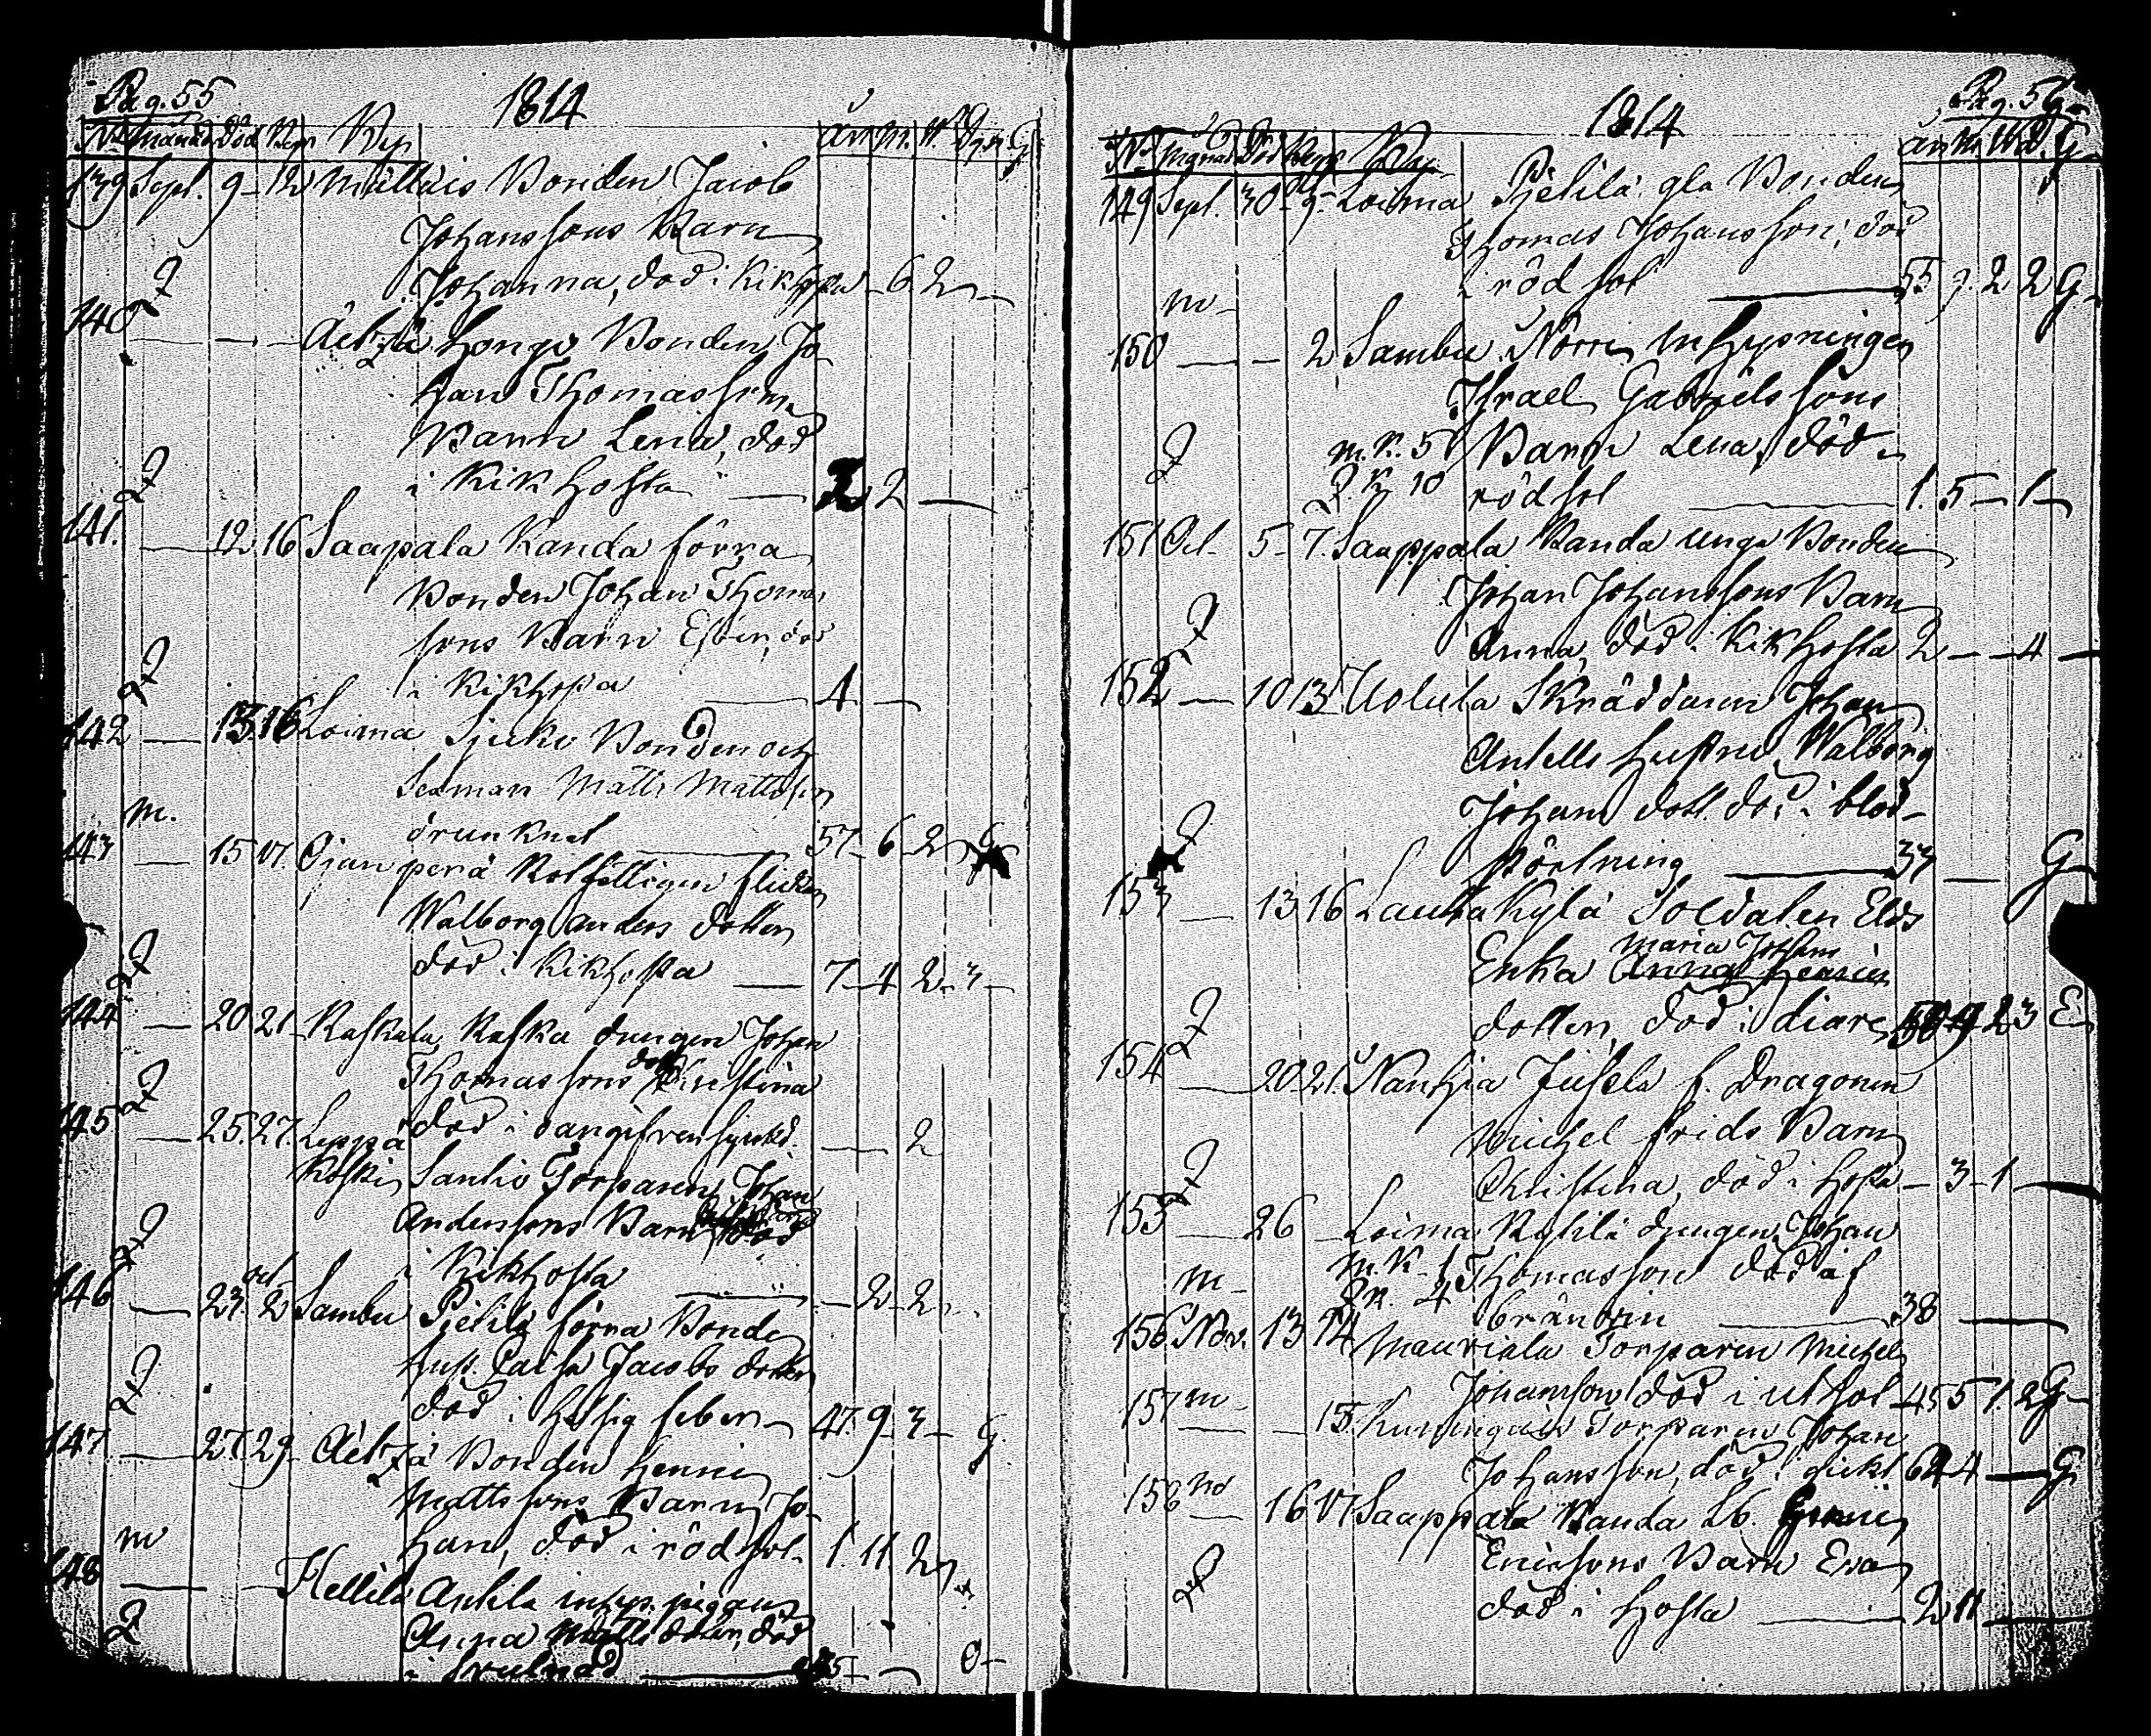 Pag. 55
1814
No Månad Död Begr By
år M. W. Dgr G
139 Sept. 9 - 12 Mältäis Bonden Jacob
Johanssons Barn
Johanna, död i Kikhosta - 6 2 -
140 - - - Äetzä Hongo Bonden Jo-
han Thomassons
Barn Lena, död
i Kikhosta - 2 2 -
141. - 12 16 Saapala Kanda förra
Bonden Johan Thomas
sons Barn Ester, död
i Kikhosta - 4 -
142 - 13. 16 Loima Sjuko Bonden och
Seman Matts Mattsson
m. drunknat - 57 - 6 - 2 G
143 - 15 17. Ojanperä Rotfattigen flickan
Walborg Anders dotter
död i Kikhosta - 7 - 4 2 - 3 -
144 - 20 21 - Raskala Raska drengen Johan
Thomassons dott. Christina
död i oangifven sjukd. - 2
145 - 25. 27. Leppä
Koski Santio Torparen Johan
Anderssons Barn död
i Kikhosta - 2 - 2
146 - 23. oct 2 Sambu Pietilä förra Bonde
hust. Caisa Jacobs dotter
död i hetsig feber - 47. 9 - 3 - G.
147 - 27. 29 - Äetzä Bonden Henric
Mattssons Barn Jo-
m han, död i rödsot - 1. 11 2
148 - - Hellilä Anttila inhys. pigans
Anna Matts dotter, död
i svulnad
Pag. 56
1814
No Månad Död Begr By
år M. W. d. G
149 Sept. 30 - 9 - Loima Pietilä gla Bonden
Thomas Johansson, död
m - i rödsot - 55 7. 2 2 G -
150 - - 2 Sambu Norri Inhysningen
Israel Gabrielssons
m. K. 5 Barn Lena, död
Q. K. 10 rödsot - 1. 5 - 1 -
151 Oct. 5 - 7. Saappala Kanda unga Bonden
Johan Johanssons Barn
Anna, död i Kikhosta 2 - - 4 -
152 - 10 13 Uolula Skräddaren Johan
Antells hustru Walborg
Johans dott. död i blod-
störtning - 33 - G
153 - 13 16 Lauhakylä Soldaten Elds
Enka Maria Johans
dotter, död i diare 2 3 E
154 - 20 21. Näntziä Jusela f. Dragonen
Michel frids Barn
Christina, död i hosta - 3 - 1 -
155 - 26 - Loima Kyhlä drengen Johan
m - m. K. 1 Thomasson död af
Q. K. 4 bränvin - 38 -
156 Nov. 13 14 Mauriala Torparen Michel
m - Johansson död i utsot - 45 5 1. 2 G -
157 - - 15. Kuningais Torparen Johan
m Johansson, död i gickt 64 4 - G
158 - 16 17 Saappala Kanda Lb.
Ericssons Barn Eva
död i hosta - 2 11 -